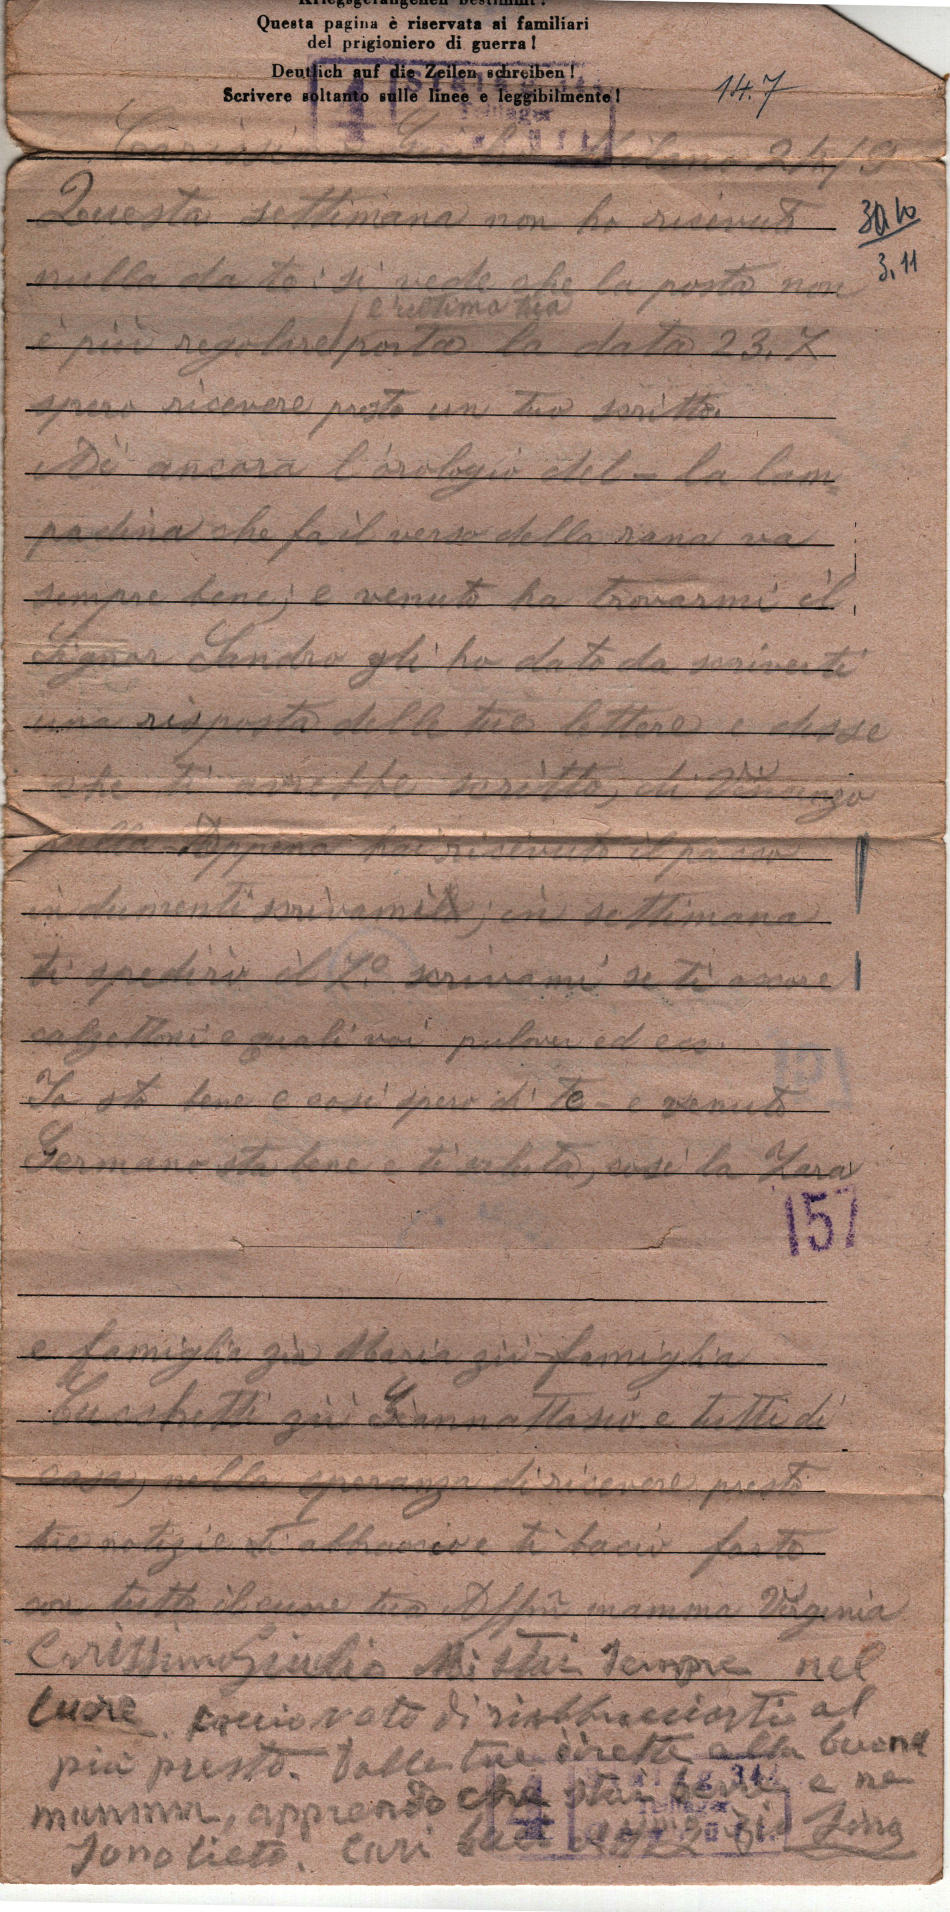 Kriegsgefangenen bestimmt!
Questa pagina è riservata ai familiari
del prigioniero di guerra!
Deutlich auf die Zeilen schreiben!
Scrivere soltanto sulle linee e leggibilmente!
14.7
Carissimo Giulio Milano 24/9
Questa settimana non ho ricevuto
30.10
3.11
nulla da te: si vede che la posta non
e l'ultima tua
è più regolare porta la data 23.7
spero ricevere presto un tuo scritto.
ancora l'orologio del - la lam-
padina che fa il verso della rana va
sempre bene; e venuto ha trovarmi il
Signor Sandro gli ho dato da scriverti
una risposta delle tue lettere e disse
che ti avrebbe scritto, di Vincenzo
nulla. Appena hai ricevuto il pacco
indumenti scrivami; in settimana
ti spedirò il 7º scrivami se ti
calzettoni e quali voi pulover ed ecc.
Io sto bene e così spero di te - e venuto
Germano sta bene e ti saluta, così la Zara
157
e famiglia zia Maria zii famiglia
zii Giannattasio e tutti di
casa, nella speranza di ricevere presto
tue notizie ti abbraccio e ti bacio forte
con tutto il cuore tua Affma mamma Virginia
Carissimo Giulio Mi stai sempre nel
cuore. di riabbracciarti al
più presto. Dalle tue dirette alla buona
mamma, apprendo che stai bene e ne
sono lieto. Cari baci zio